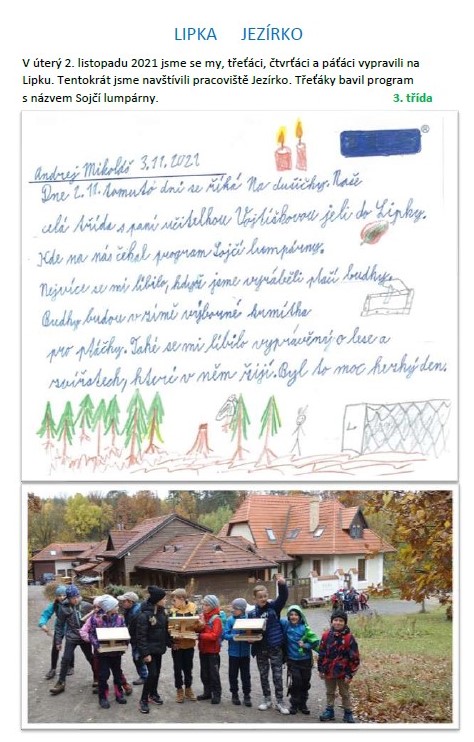 LIPKA JEZÍRKO
V úterý 2. listopadu 2021 jsme se my, třeťáci, čtvrťáci a páťáci vypravili na
Lipku. Tentokrát jsme navštívili pracoviště Jezírko. Třeťáky bavil program
s názvem Sojčí lumpárny. 3. třída
Andrej Mikoláš 3.11.2021
Dne 2.11. tomuto dni se říká Na dušičky. Naše
celá třída s paní učitelkou Vojtíškovou jeli do Lipky.
Kde na nás čekal program Sojčí lumpárny.
Nejvíce se mi líbilo, když jsme vyráběli ptačí budky.
Budky budou v zimě výborné krmítka
pro ptáčky. Také se mi líbilo vyprávěný o lese a
zvířatech, které v něm žijí. Byl to moc hezký den.